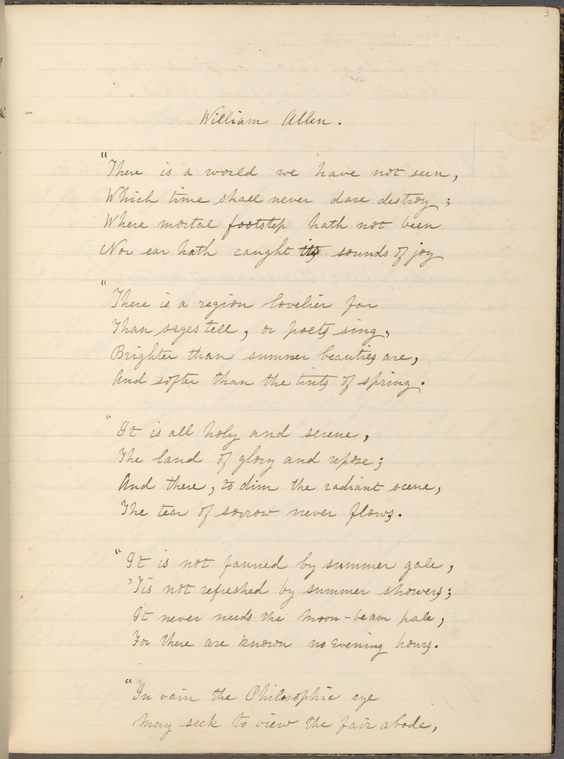 3
William Allen.
"There is a world we have not seen,
Which time shall never dare destroy;
Where mortal footstep hath not been
Nor ear hath caught its sounds of joy
"There is a region lovelier far
Than sages tell, or poets sing,
Brighter than summer beauties are,
And softer than the tints of spring.
"It is all holy and serene,
The land of glory and repose;
And there, to dim the radiant scene,
The tear of sorrow never flows.
"It is not fanned by summer gale,
'Tis not refreshed by summer showers;
It never needs the moon-beam pale,
For there are known no Evening hours.
"In vain the Philosophic eye
May seek to view the fair abode,